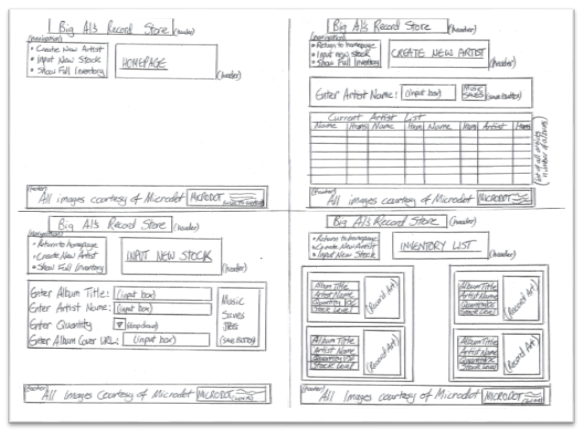 Big Al's Record Store (header)
(navigation)
• Create New Artist
• Input New Stock
• Show Full Inventory
HOMEPAGE
(header)
(footer)
All images courtesy of Microdot MICRODOT
Big Al's Record Store (header)
(navigation)
• Return to homepage
• Input new Stock
• Show Full Inventory
CREATE NEW ARTIST
(header)
Enter Artist Name: (input box) MUSIC SAVES (save button)
Current Artist List
Name Items Name Item Name Item Artist Items
(list of all artists
& number of albums)
(footer)
All images courtesy of Microdot MICRODOT
Big Al's Record Store (header)
(navigation)
• Return to homepage
• Create New Artist
• Show Full Inventory
INPUT NEW STOCK
(header)
Enter Album Title: (input box)
Enter Artist Name: (input box)
Enter Quantity (dropdown)
Enter Album Cover URL: (input box)
Music
Saves
(save button)
(footer)
All Images Courtesy of Microdot MICRODOT
Big Al's Record Store (header)
• Return to homepage
• Create New Artist
• Input New Stock
INVENTORY LIST
(header)
Album Title
Artist Name
Stock Level
(Record Art)
Album Title
Artist Name
Quantity
Stock Level
(Record Art)
Album Title
Artist Name
Stock Level
(Record Art)
Album Title
Artist Name
Stock Level
(Record Art)
(footer)
All Images courtesy of Microdot MICRODOT